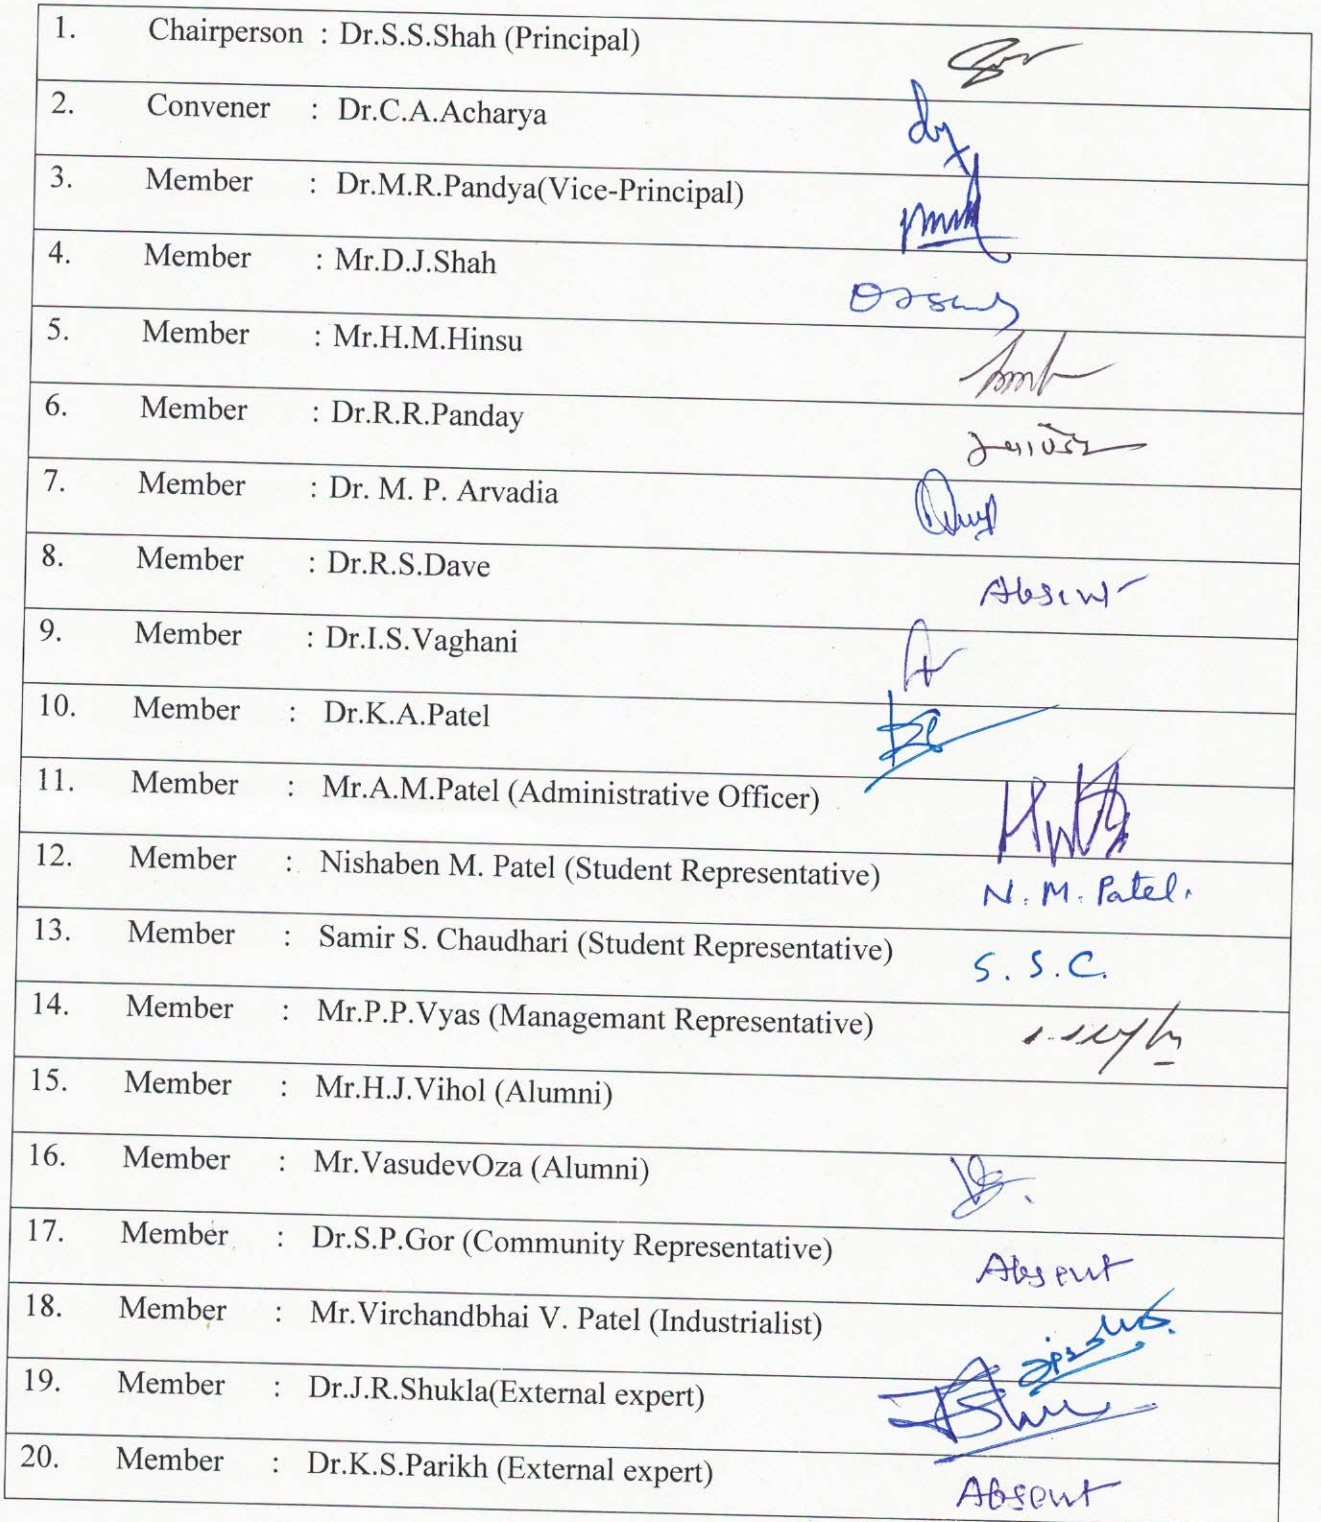 1. Chairperson : Dr.S.S.Shah (Principal)
2. Convener : Dr.C.A.Acharya
3. Member : Dr.M.R.Pandya(Vice-Principal)
4. Member : Mr.D.J.Shah
5. Member : Mr.H.M.Hinsu
6. Member : Dr.R.R.Panday
7. Member : Dr. M. P. Arvadia
8. Member : Dr.R.S.Dave Absent
9. Member : Dr.I.S.Vaghani
10. Member : Dr.K.A.Patel
11. Member : Mr.A.M.Patel (Administrative Officer)
12. Member : Nishaben M. Patel (Student Representative) N. M. Patel.
13. Member : Samir S. Chaudhari (Student Representative) S. S. C.
14. Member : Mr.P.P.Vyas (Managemant Representative)
15. Member : Mr.H.J.Vihol (Alumni)
16. Member : Mr.VasudevOza (Alumni)
17. Member : Dr.S.P.Gor (Community Representative) Absent
18. Member : Mr.Virchandbhai V. Patel (Industrialist)
19. Member : Dr.J.R.Shukla(External expert)
20. Member : Dr.K.S.Parikh (External expert) Absent